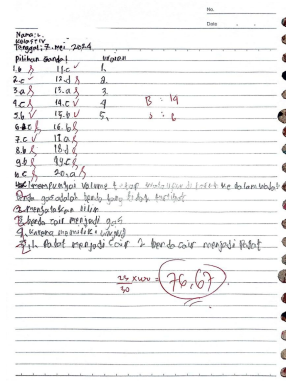 No.
Date
Nama: L.
Kelas: IV
Tanggal: 7. Mei 2024
Pilihan Ganda! uraian
1. b 11. c 1.
2. c 12. d 2.
3. a 13. a 3.
4. c 14. c 4 B : 19
5. b 15. b 5. S : 
6. c 16. b
7. c 17. a
8. b 18. d
9. b 19. c
10. c 20. a
mempunyai volume tetap walaupun di ke dalam wadah
benda gas adalah benda yang tidak terlihat
2. menyalakan lilin
3. benda cair menjadi gas
4. karena memiliki
5. padat menjadi cair 2 benda cair menjadi padat
23 x 100 = 76,67
30